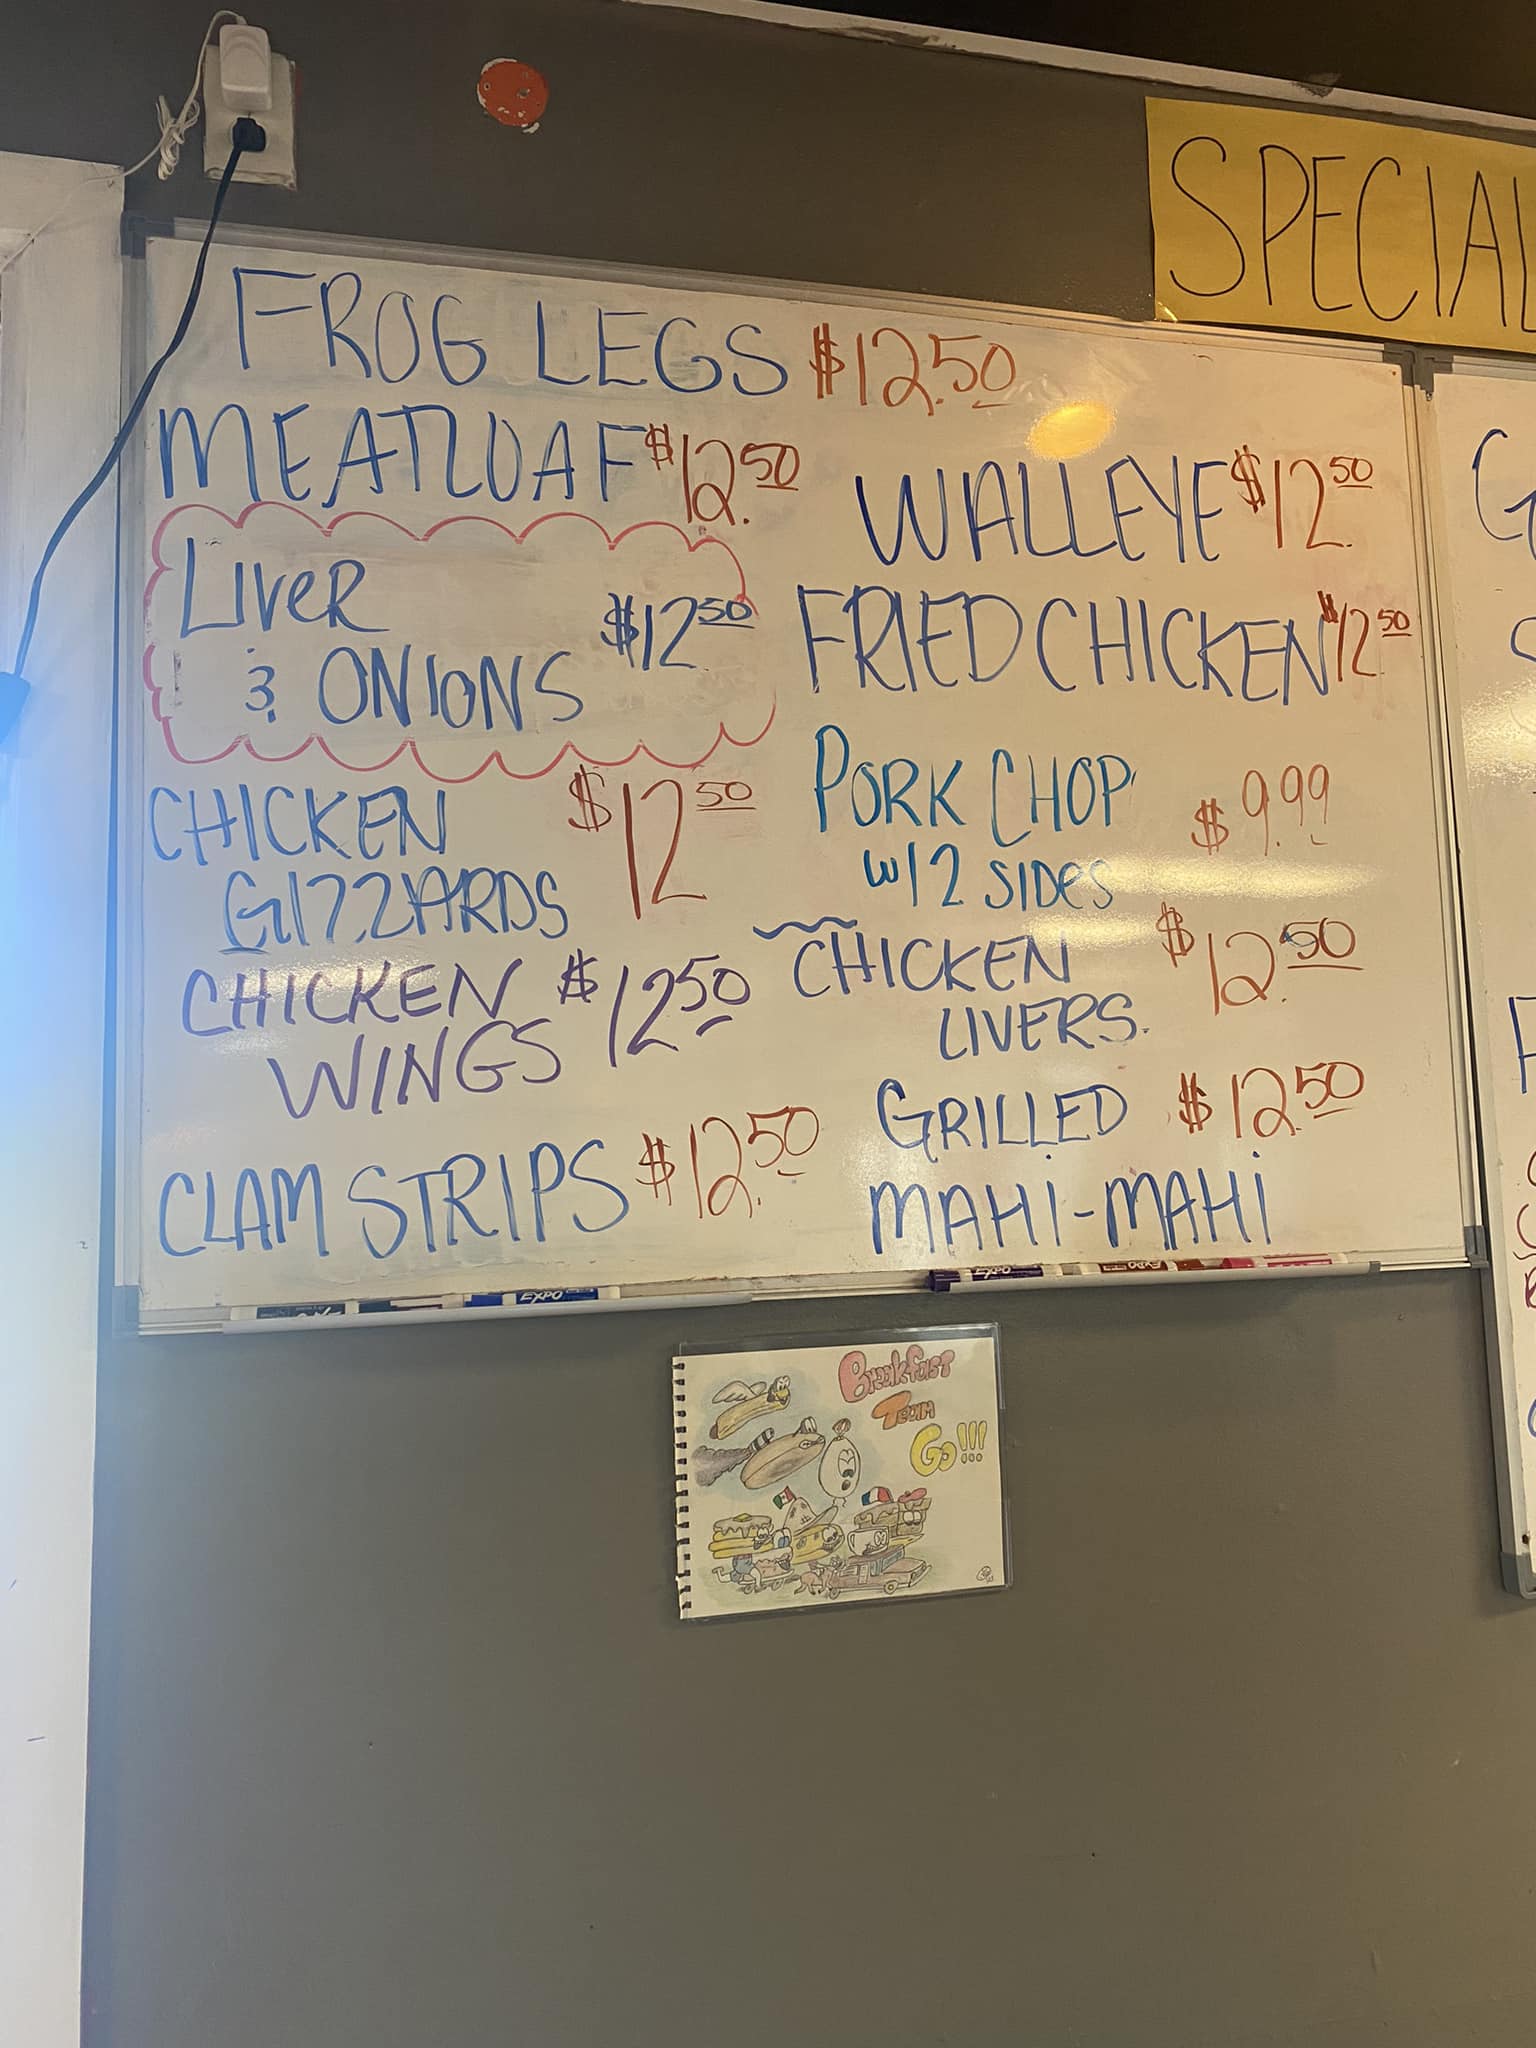 SPECIAL
FROG LEGS $12.50
MEATLOAF $12.50
LIVER
& ONIONS $12.50
CHICKEN
GIZZARDS $12.50
CHICKEN
WINGS $12.50
CLAM STRIPS $12.50
WALLEYE $12.50
FRIED CHICKEN $12.50
PORK CHOP
W/2 SIDES $9.99
CHICKEN
LIVERS $12.50
GRILLED $12.50
MAHI-MAHI
EXPO
EXPO
EXPO
Breakfast
Team
Go!!!